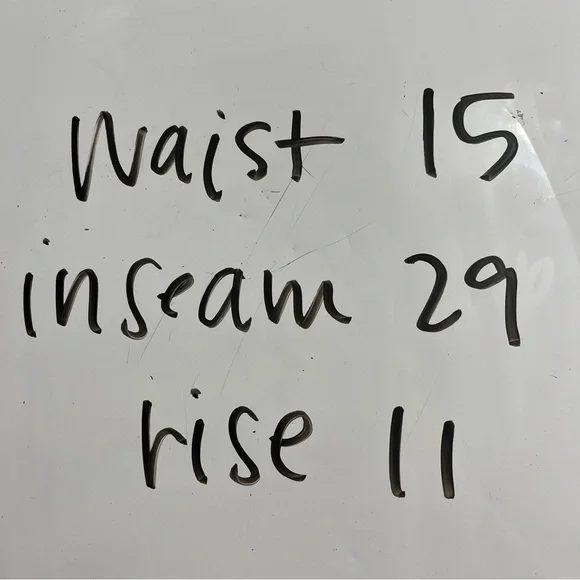 Waist 15
inseam 29
rise 11